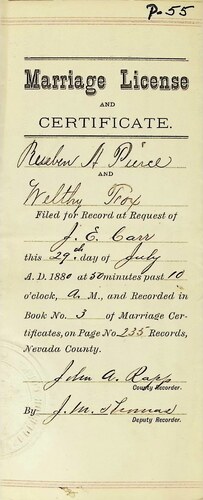 P. 55
Marriage License
AND
CERTIFICATE.
Reuben A Pierce
AND
Welthy Fox
Filed for Record at Request of
J. E. Carr
this 29th day of July
A. D. 1880 at 50 minutes past 10
o'clock, A. M., and Recorded in
Book No. 3 of Marriage Cer-
tificates, on Page No. 235 Records,
Nevada County.
John A. Rapp
County Recorder.
By J. M. Thomas
Deputy Recorder.